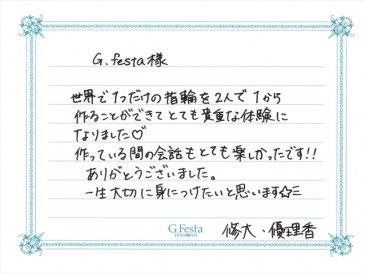 G.festa様
世界で1つだけの指輪を2人で1から
作ることができてとても貴重な体験に
なりました♡
作っている間の会話もとても楽しかったです!!
ありがとうございました。
一生大切に身につけたいと思います☆ミ
G.Festa
修大・優理香